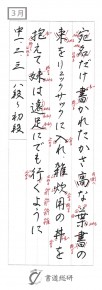 3月
宛名だけ書かれたかさ高な葉書の
束をリュックサックに入れ、雑炊用の丼を
抱えて妹は遠足にでも行くように
中一・二・三 八段〜初段
書道総研